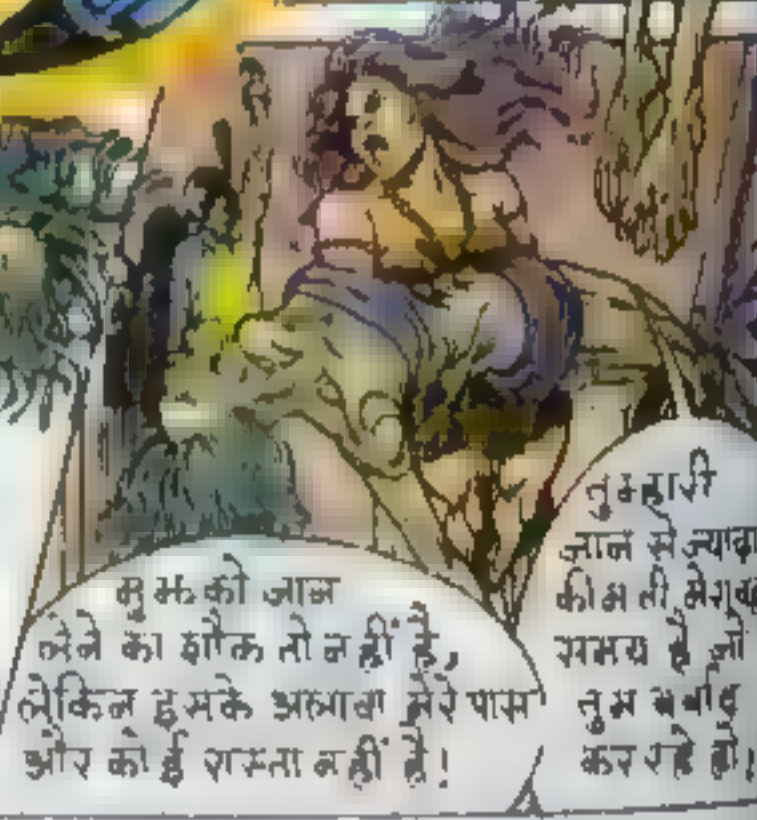 मुझको जान
लेने का शौक तो नहीं है,
लेकिन इसके अलावा मेरे पास
और कोई रास्ता नहीं है!
तुम्हारी
जान से ज्यादा
कीमती मेरा वह
समय है जो
तुम बर्बाद
कर रहे हो!